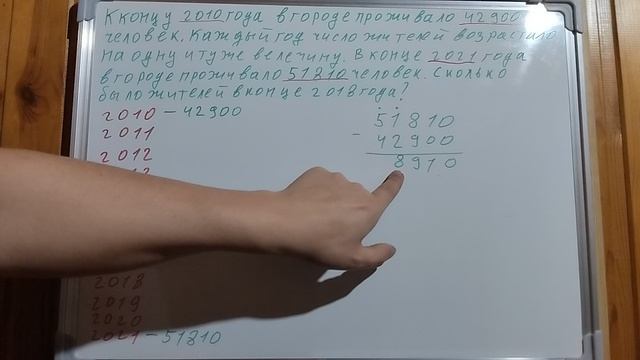 К концу 2010 года в городе проживало 42900
человек. Каждый год число жителей возрастало
на одну и ту же велечину. В конце 2021 года
в городе проживало 51810 человек. Сколько
было жителей в конце 2018 года?
2010 – 42900
2011
2012
51810
-
42900
8910
2018
2019
2020
2021 – 51810